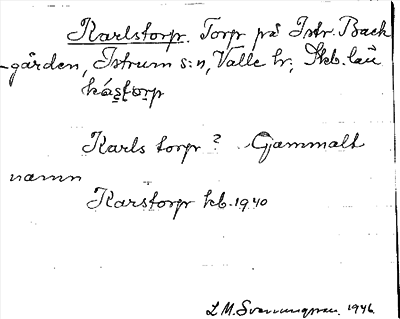 Karlstorp. Torp på Istr. Back
-gården, Istrum s:n, Valle hr; Skb. län
kástorp
Karls torp? Gammalt
namn
Karstorp kb. 1940
L M. Svenungsson. 1946.